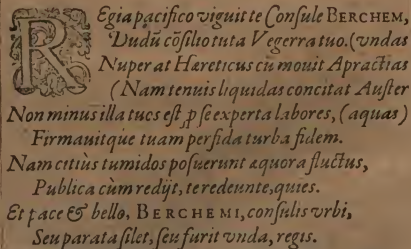 REgia pacifico viguit te Consule BERCHEM,
Dudū cōsilio tuta Vegerra tuo. (vndas
Nuper at Hæreticus cū mouit Apractias
(Nam tenuis liquidas concitat Auster
Non minus illa tuos est ꝑ se experta labores, (aquas)
Firmauitque tuam perfida turba fidem.
Nam citiùs tumidos posuerunt æquora fluctus,
Publica cùm redijt, te redeunte, quies.
Et pace & bello, BERCHEMI, consulis vrbi,
Seu parata silet, seu furit vnda, regis.